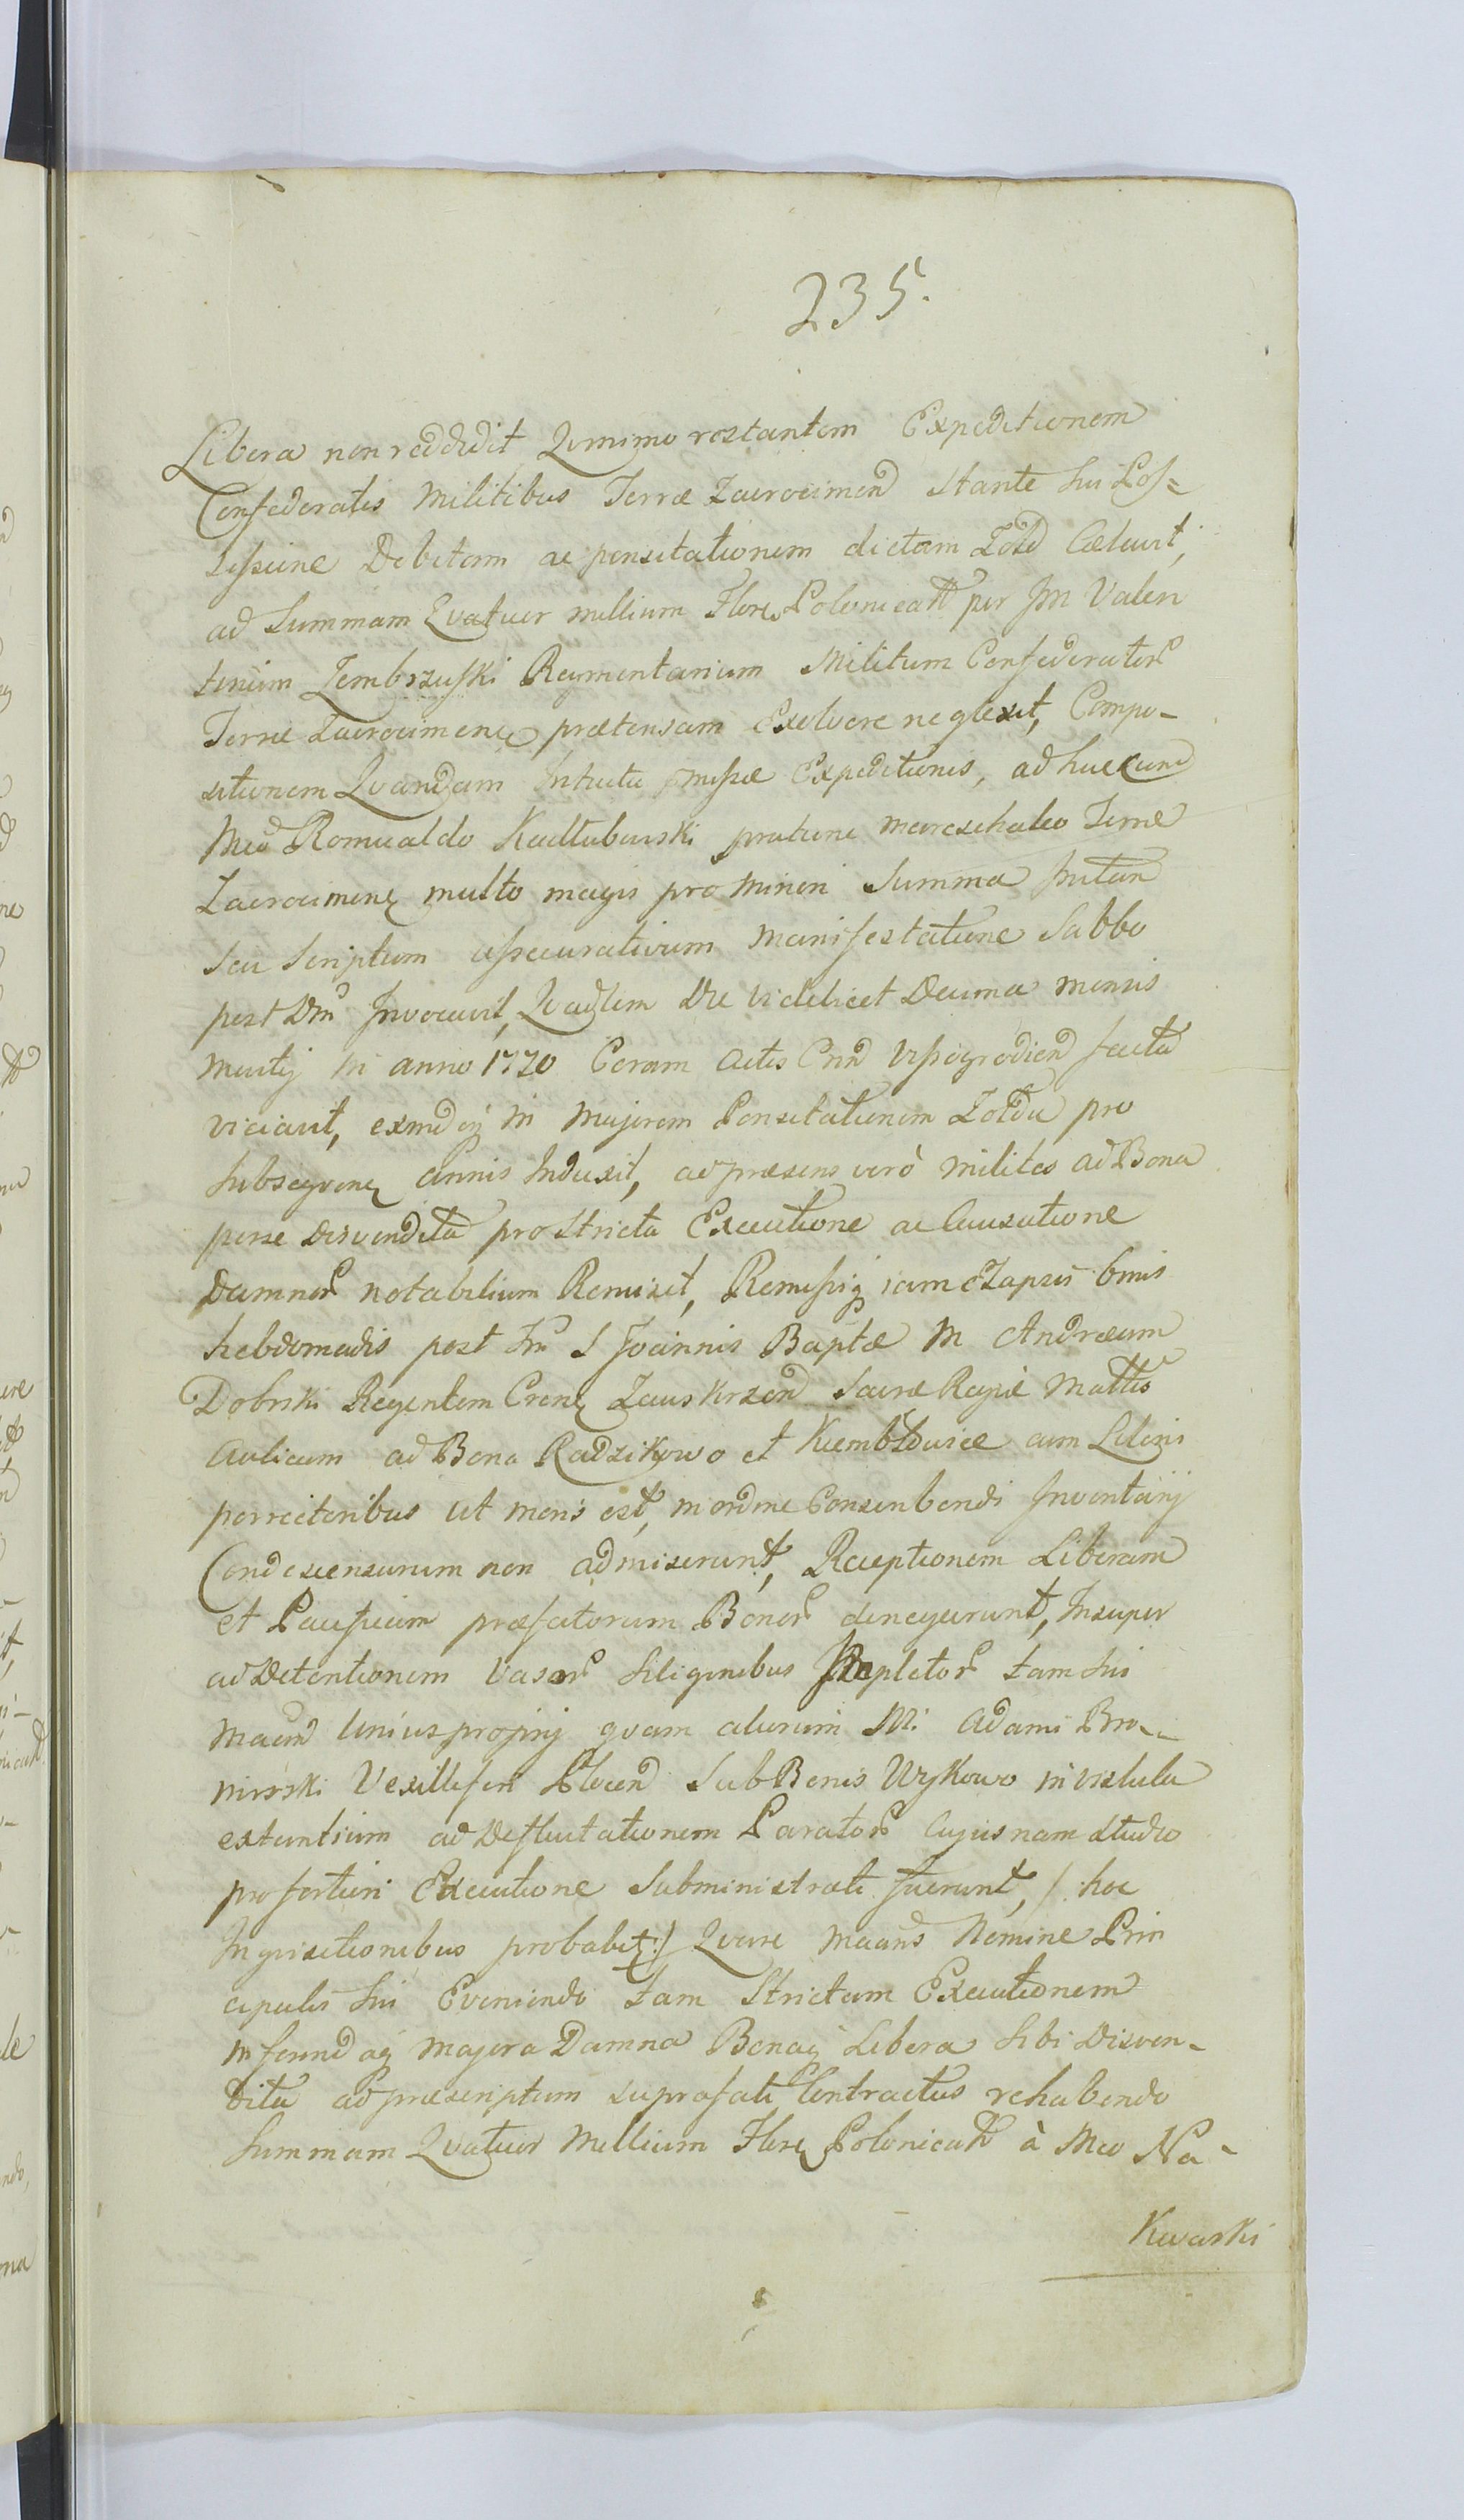 235.
Libera non reddidit Qvinimo restantem Expeditionem
Confederatis Militibus Terræ Zacrocimen Stante sui Pos-
sessione Debitam ac pensitationem dictam Zołd Celavit,
ad Summam Qvatuor millium Flore Polonicatt per Jm Valen
tinum Zembrzuski Regimentarium Militum Confederator
Terræ Zacrocimene prætensam Exolvere neglexit, Compo-
sitionem Qvandam Intuitu pmissæ Expeditionis, adhuc cum
Mco Romualdo Kadłubowski pratunc mareschalco Terræ
Zacrocimen multo magis pro Minori Summa Initam
seu Scriptum assecurativum Manifestatione Sabbo
post Dm Invocavit, Qvadlem Die videlicet Decima mensis
Martij in anno 1770 Coram Actis Cnn Vissogrodien facta
viciavit, exindeq in Majorem Pensitationem Zołdu pro
subseqvene annis Induxit, ad præsens verò milites ad Bona
perse Disvendita pro Stricta Executione ac Causatione
Damnor notabilium Remisit, Remissisq iam Elapsis binis
hebdomadis post Fm S Joannis Baptæ M Andræam
Dobrski Regentem Crenz Zawskrzen Sacræ Regiæ Mattis
Aulicum ad Bona Radzikowo et Kiembłowice cum Literis
porrectoribus ut moris est, in ordine Conscribendi Inventarij
Condescensurum non admiserunt, Receptionem Liberam
et Pacificam præfatorum Bonor denegarunt, Insuper
ad Detentionem Vasor Siliginibus Impletor tam sui
Macnd Unius proprij qvam aliorum M. Adami Bro-
niewski Vexilliferi Plocen Sub Bonis Wykowo in vistula
extantium ad Defluitationem Parator Cujusnam studio
pro fortiori Executione Subministrati fuerunt, /: hoc
Inqvisitionibus probabit :/ Qvare Macnds Nomine Prin
cipalis sui Eveniendo tam Strictam Executionem
inferendaq majora Damna Bonaq Libera sibi Disven-
dita ad præscriptum suprafati Contractus rehabendo
Summam Qvatuor Millium Flore Polonicatt à Mco Na-
Kwaski